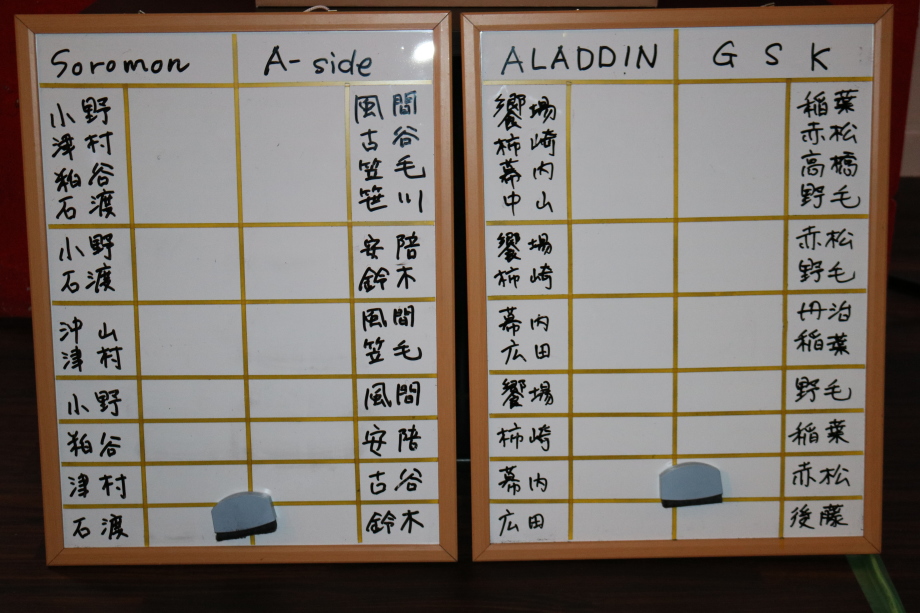 Soromon A-side
小野 風間
津村 古谷
粕谷 笠毛
石渡 笹川
小野 安陪
石渡 鈴木
沖山 風間
津村 笠毛
小野 風間
粕谷 安陪
津村 古谷
石渡 鈴木
ALADDIN GSK
饗場 稲葉
柿崎 赤松
幕内 高橋
中山 野毛
饗場 赤松
柿崎 野毛
幕内 丹治
広田 稲葉
饗場 野毛
柿崎 稲葉
幕内 赤松
広田 後藤